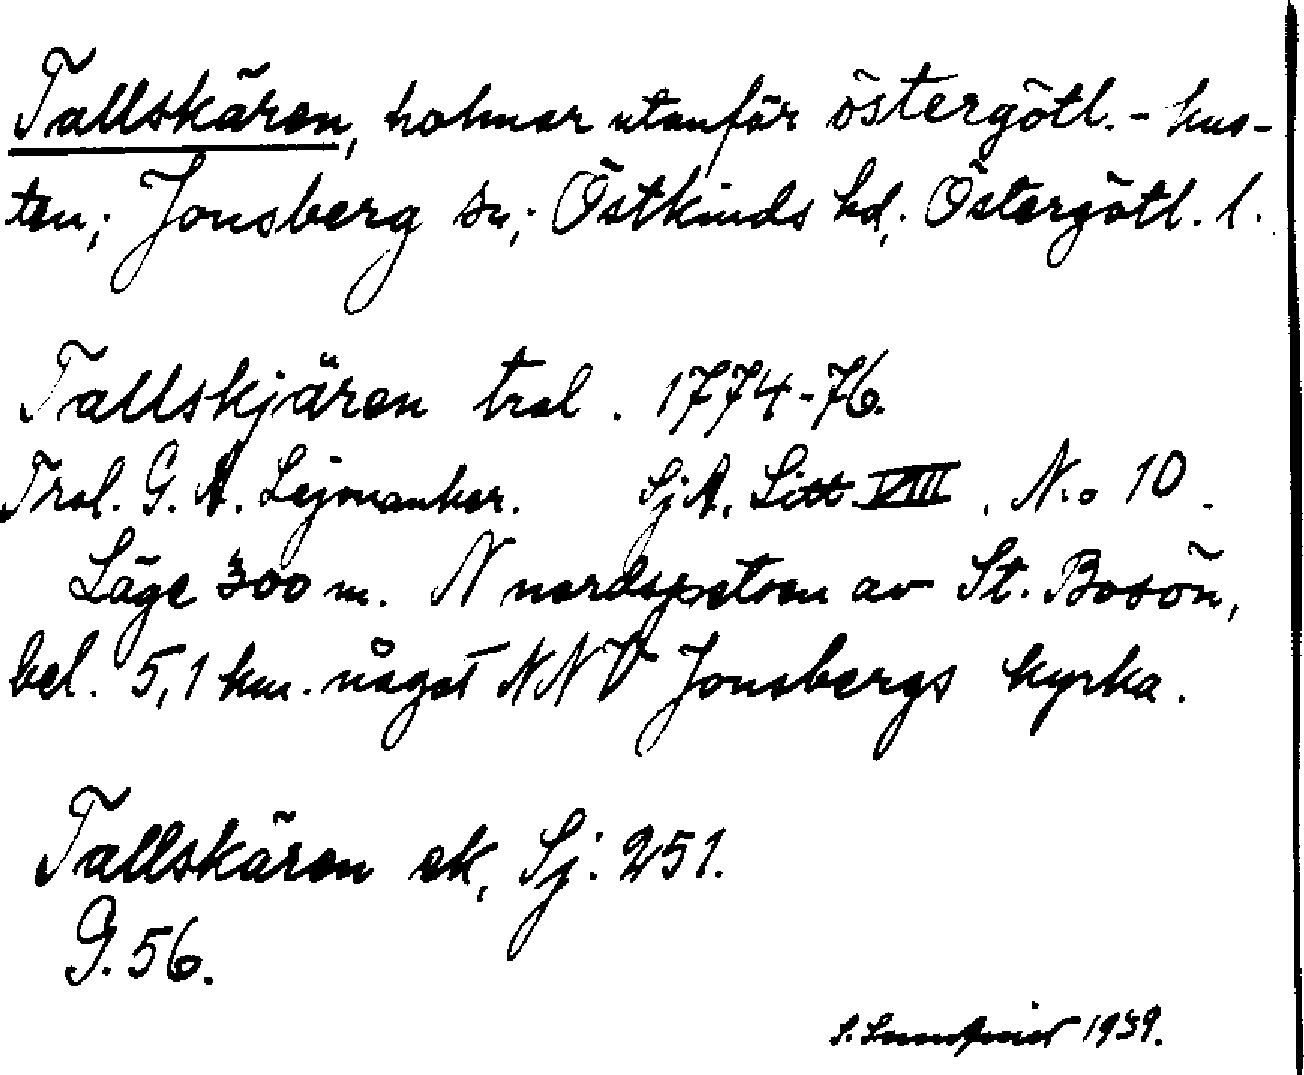 Tallskären, holmar utanför östergötl.-kus-
ten; Jonsberg sn; Östkinds hd; Östergötl. l.
Tallskjären trol. 1774-76.
Trol. G. A. Lejonanker. SjA. Litt. VIII. N:o 10.
Läge 300 m. N nordspetsen av St. Bosön,
bel. 5,1 km. något NNV Jonsbergs kyrka.
Tallskären ek, Sj: 251.
G. 56.
S. 1939.